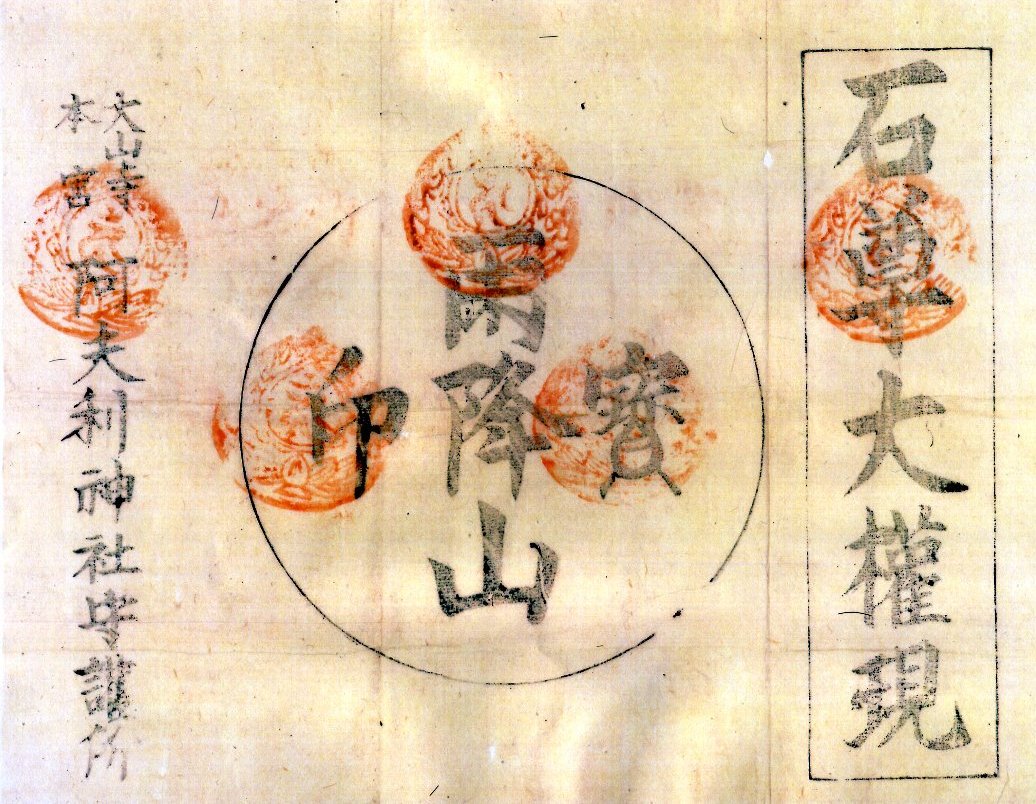 石尊大權現
寳
雨降山
印
大山寺
本宮
阿夫利神社守護所